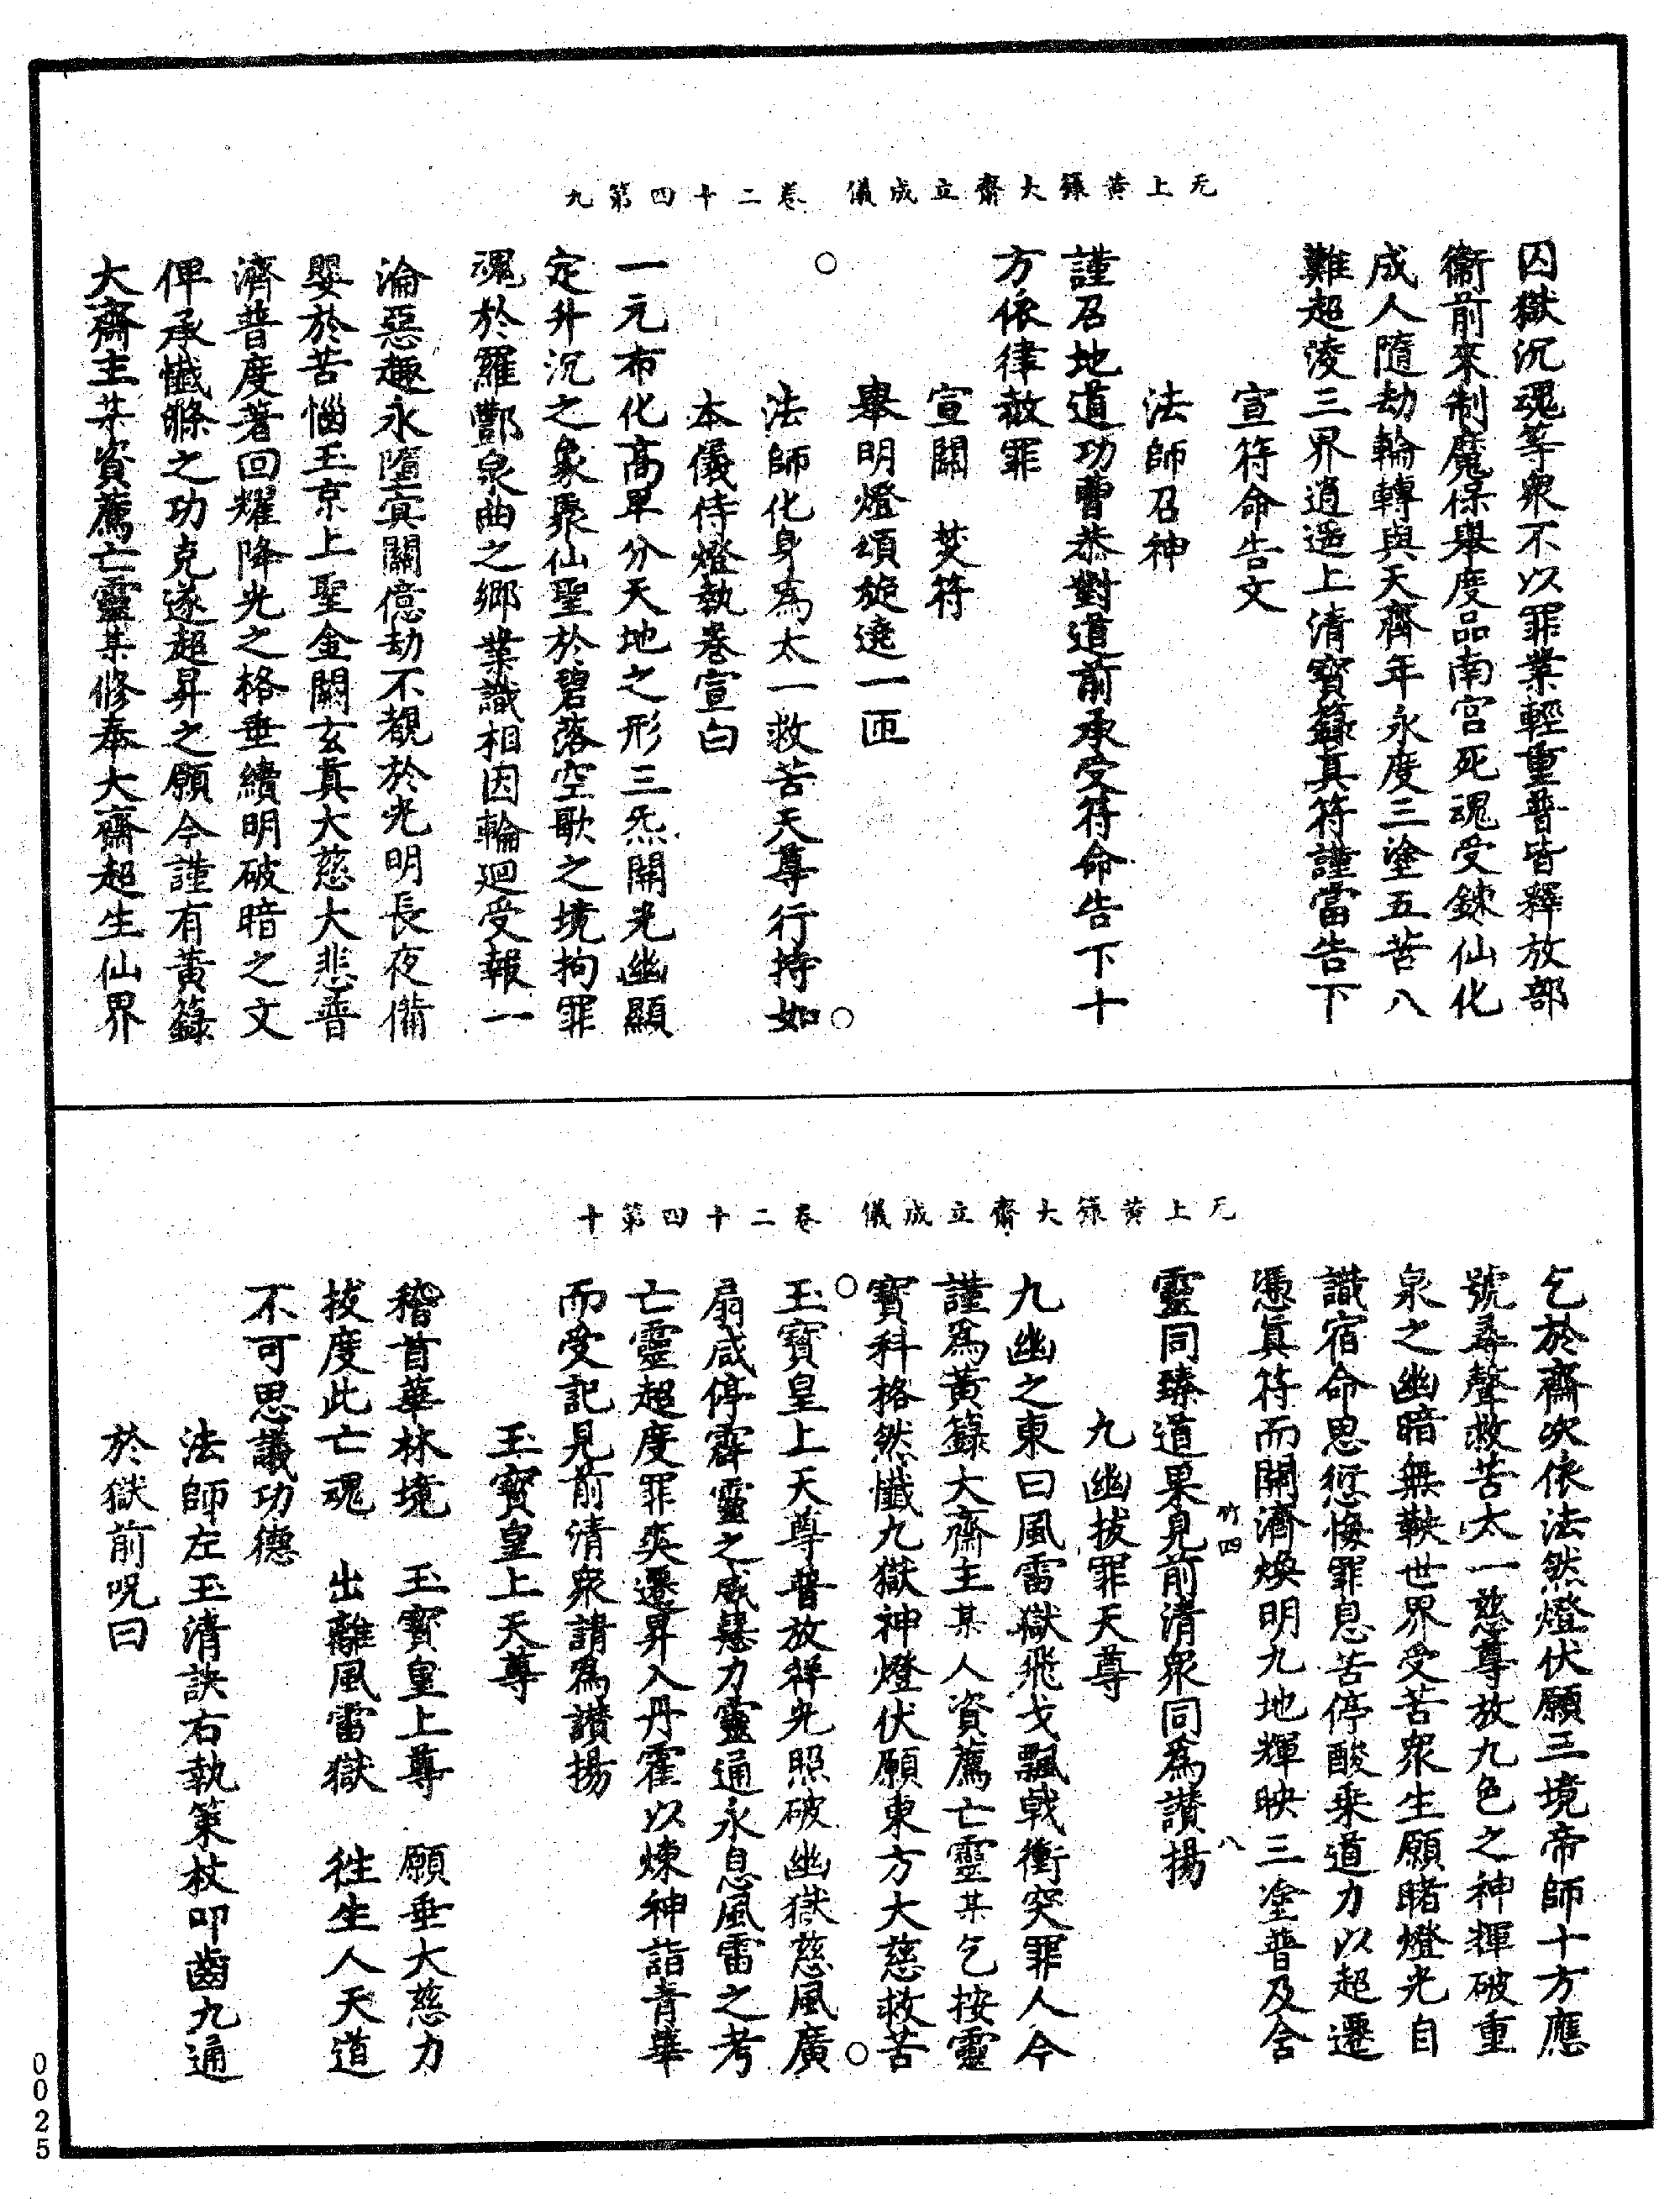 无上黃籙大齋立成儀　卷二十四第九
囚獄沉魂等衆不以罪業輕重普皆釋放部
衞前來制魔保舉度品南宫死魂受鍊仙化
成人隨劫輪轉與天齊年永度三塗五苦八
難超凌三界逍遥上清寶籙真符謹當告下
宣符命告文
法師召神
謹召地道功曹恭對道前承受符命告下十
方依律赦罪
宣關　焚符
舉明燈頌旋遶一匝
法師化身爲太一救苦天尊行持如
本儀侍燈執卷宣白
一元布化高卑分天地之形三炁開光幽顯
定升沉之象聚仙聖於碧落空歌之境拘罪
魂於羅酆泉曲之鄉業識相因輪迴受報一
淪惡趣永墮冥關億劫不覩於光明長夜備
嬰於苦惱玉京上聖金闕玄真大慈大悲普
濟普度著回耀降光之格垂續明破暗之文
俾承懺滌之功克遂超昇之願今謹有黃籙
大齋主某資薦亡靈某修奉大齋超生仙界
无上黃籙大齋立成儀　卷二十四第十
乞於齋次依法然燈伏願三境帝師十方應
號尋聲救苦太一慈尊放九色之神輝破重
泉之幽暗無鞅世界受苦衆生願睹燈光自
識宿命思愆悔罪息苦停酸乘道力以超遷
憑眞符而開濟煥明九地輝映三塗普及含
竹四　八
靈同臻道果見前清衆同爲讃揚
九幽拔罪天尊
九幽之東曰風雷獄飛戈飄戟衝突罪人今
謹爲黃籙大齋主某人資薦亡靈某乞按靈
寶科格然懺九獄神燈伏願東方大慈救苦
玉寶皇上天尊普放祥光照破幽獄慈風廣
扇咸停霹靂之威慧力靈通永息風雷之考
亡靈超度罪爽遷昇入丹霍以煉神詣青華
而受記見前清衆請爲讃揚
玉寶皇上天尊
稽首華林境　玉寶皇上尊　願垂大慈力
拔度此亡魂　出離風雷獄　徃生人天道
不可思議功德
法師左玉清訣右執策杖叩齒九通
於獄前呪曰
0025